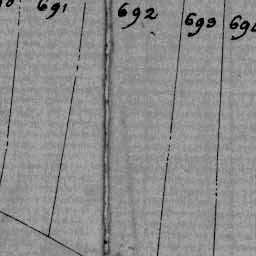 691 692 693